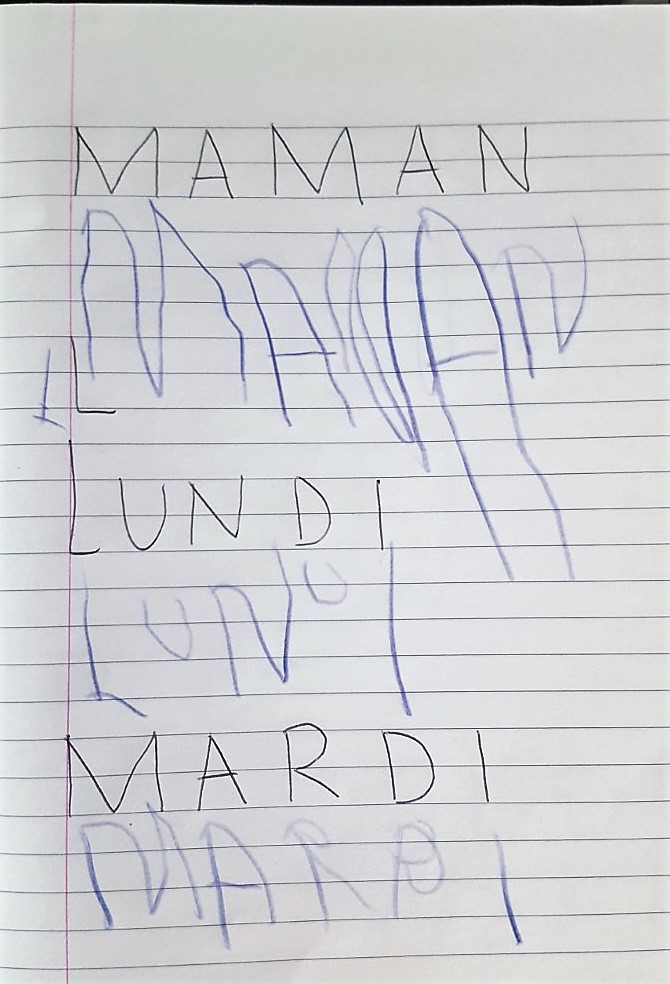 MAMAN
MAMAN
L L
LUNDI
LUNUI
MARDI
MARDI